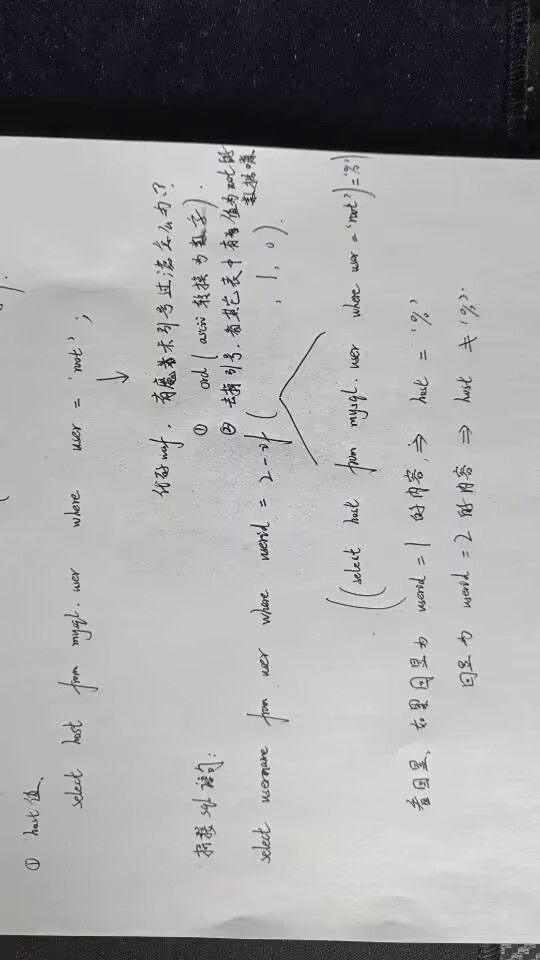 ① host值、
select host from mysql.user where user = 'root' ;
↓
代码waf . 有魔术引号过滤怎么办??
① ord ( ascii 转换为数字 ) .
② 去掉引号. 看其它表中有没有值为root的数据
拼接sql语句:
select username from user where userid = 2-if ( , 1, 0 ) .
((select host from mysql.user where user = 'root') = '%')
看回显、如果回显为 userid = 1 的内容, ⇒ host = '%'
回显为 userid = 2 的内容 ⇒ host ≠ '%'.